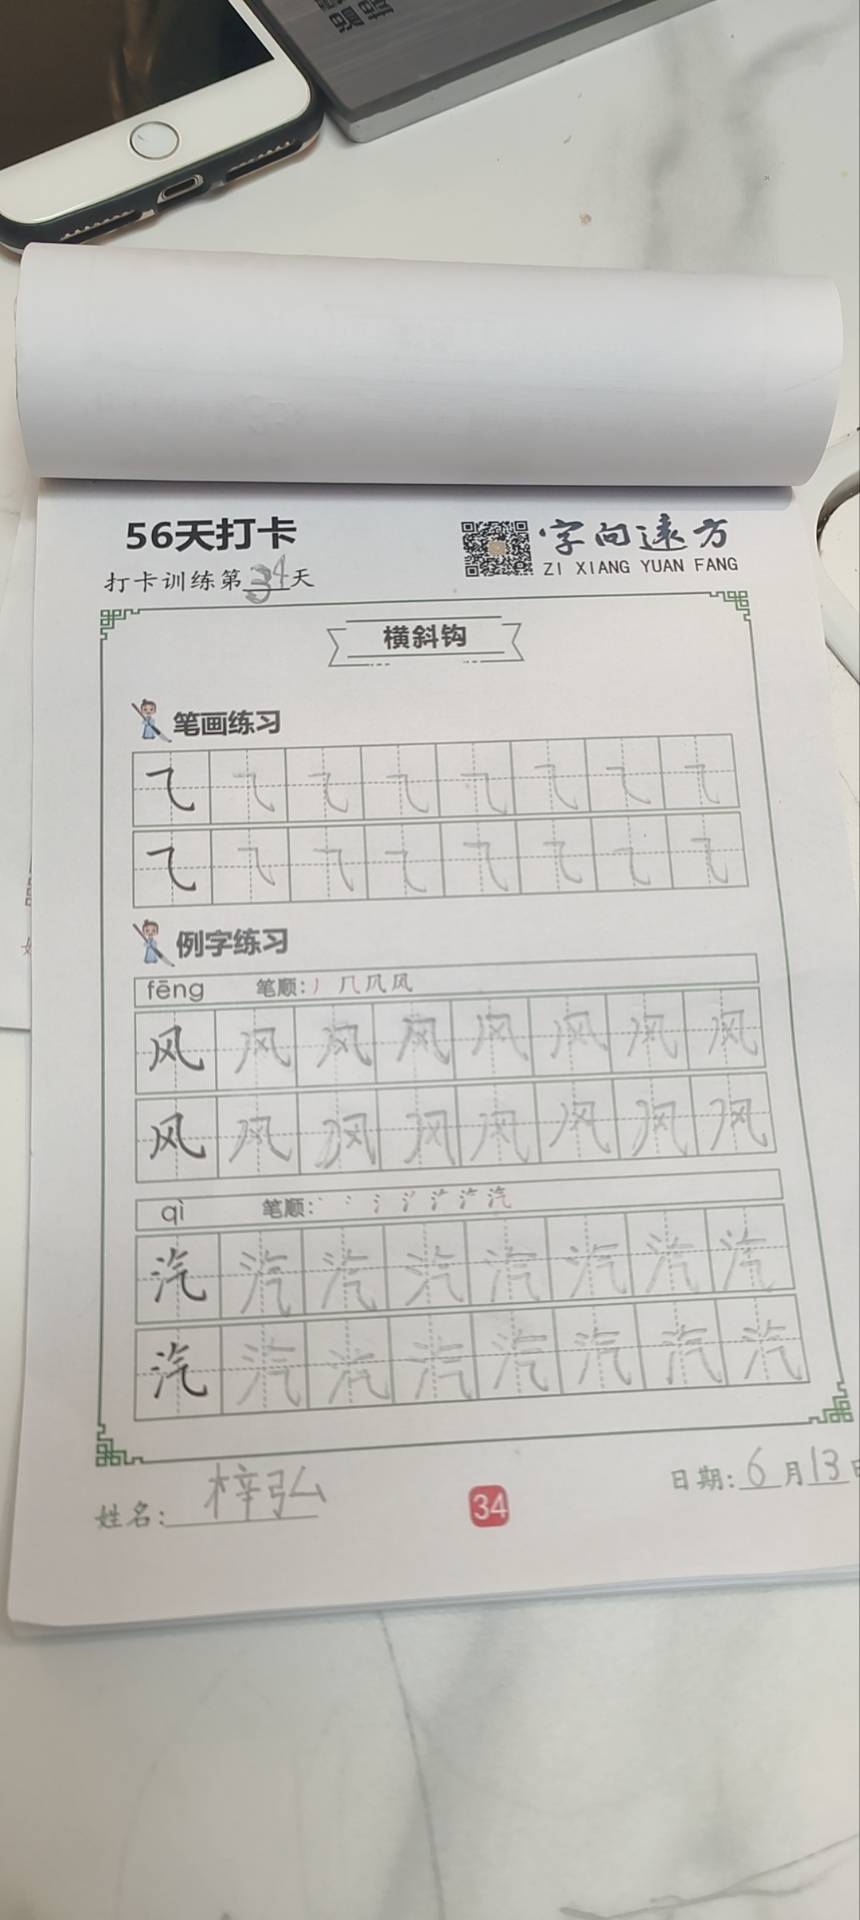 56天打卡
字向远方
打卡训练第34天
ZI XIANG YUAN FANG
横斜钩
笔画练习
⺄ ⺄ ⺄ ⺄ ⺄ ⺄ ⺄ ⺄
⺄ ⺄ ⺄ ⺄ ⺄ ⺄ ⺄ ⺄
例字练习
fēng 笔顺:丿 ⺇ 凤 风
风 风 风 风 风 风 风 风
风 风 风 风 风 风 风 风
qì 笔顺:
汽 汽 汽 汽 汽 汽 汽 汽
汽 汽 汽 汽 汽 汽 汽 汽
姓名:梓弘
34
日期:6月13日